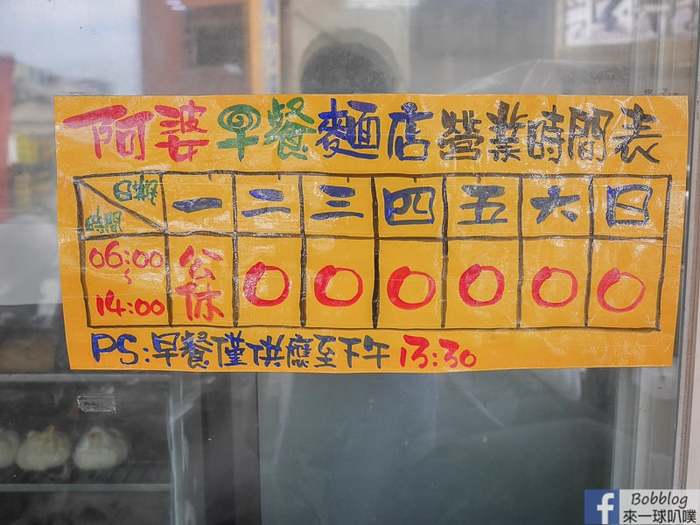 阿婆早餐麵店營業時間表
星期 一 二 三 四 五 六 日
時間
06:00~14:00 公休 O O O O O O
PS:早餐僅供應至下午13:30
Bobblog
來一球叭噗